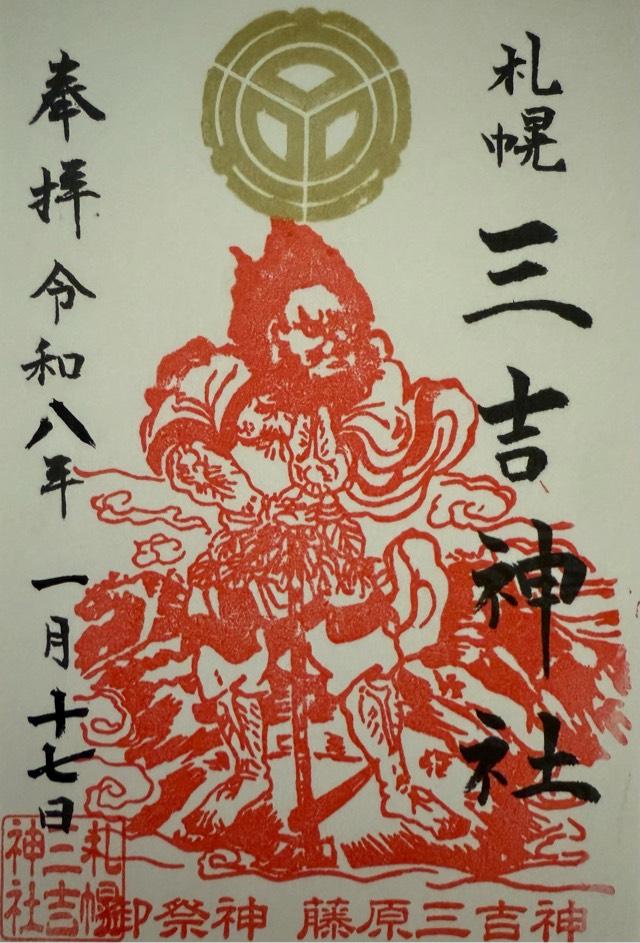 札幌三吉神社
奉拝令和八年一月十七日
御祭神 藤原三吉神
札幌
三吉
神社